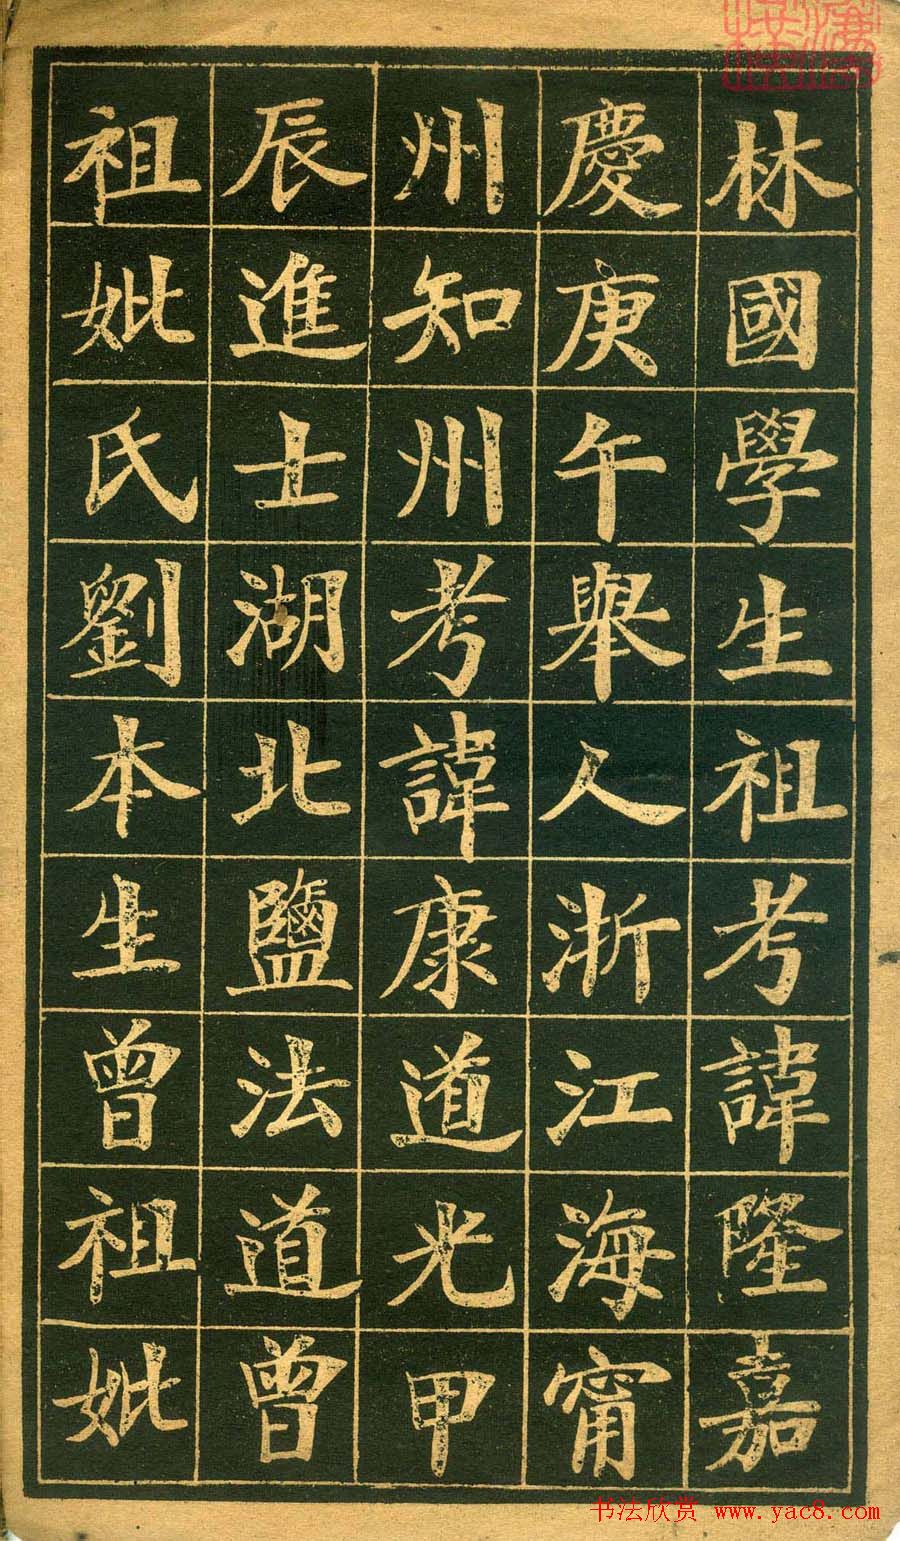 林國學生祖考諱隆嘉
慶庚午舉人浙江海甯
州知州考諱康道光甲
辰進士湖北鹽法道曾
祖妣氏劉本生曾祖妣
书法欣赏 www.yac8.com